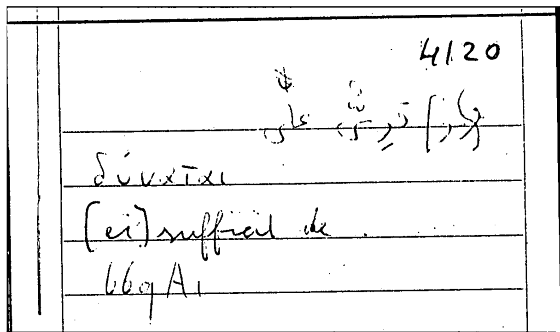 4120
على
δύναται
(ei) sufficit de
669 A1